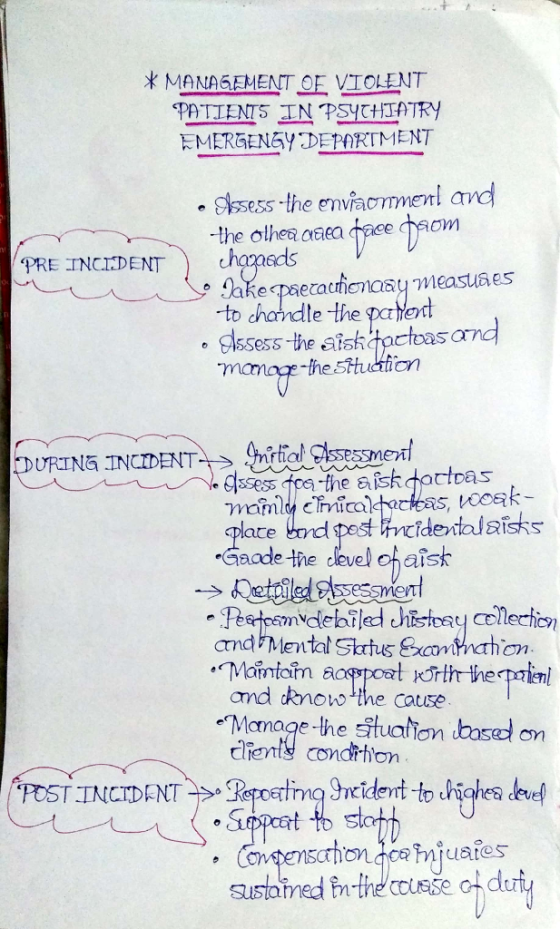 * MANAGEMENT OF VIOLENT
PATIENTS IN PSYCHIATRY
EMERGENCY DEPARTMENT
PRE INCIDENT
• Assess the environment and
the other area free from
hazards
• Take precautionary measures
to handle the patient
• Assess the risk factors and
manage the situation
DURING INCIDENT → Initial Assessment
• Assess for the risk factors
mainly clinical factors, work-
place and post incidental risks
• Grade the level of risk
→ Detailed Assessment
• Perform detailed history collection
and Mental Status Examination.
• Maintain rapport with the patient
and know the cause.
• Manage the situation based on
client's condition.
POST INCIDENT → • Reporting Incident to higher level
• Support to staff
• Compensation for injuries
sustained in the course of duty